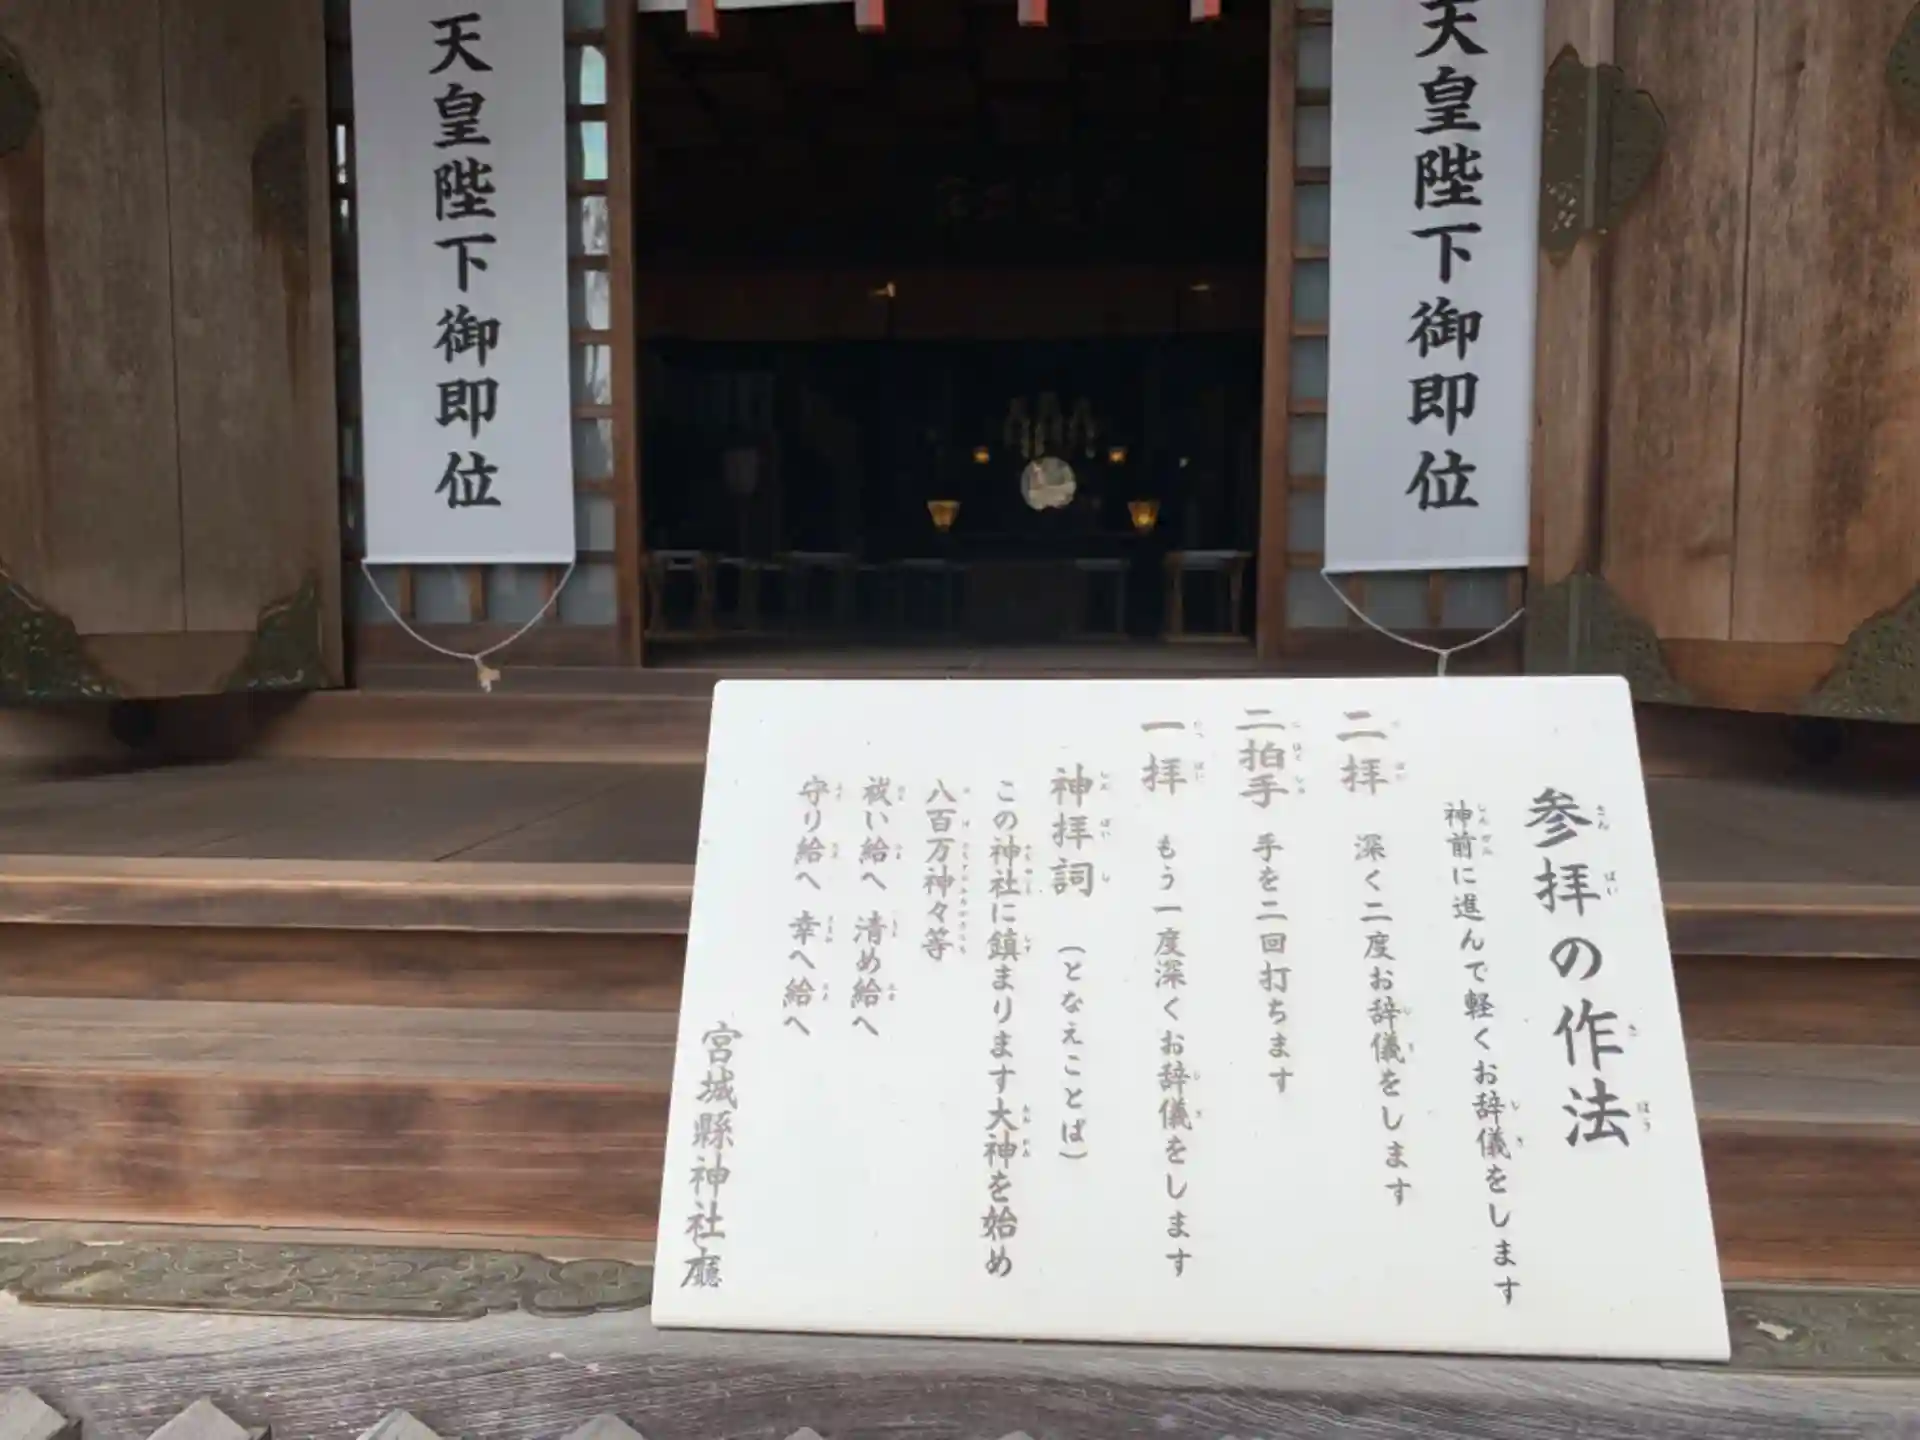 天皇陛下御即位
天皇陛下御即位
参拝の作法
神前に進んで軽くお辞儀をします
二拝 深く二度お辞儀をします
二拍手 手を二回打ちます
一拝 もう一度深くお辞儀をします
神拝詞 (となえことば)
この神社に鎮まります大神を始め
八百万神々等
祓い給へ 清め給へ
守り給へ 幸へ給へ
宮城縣神社廳